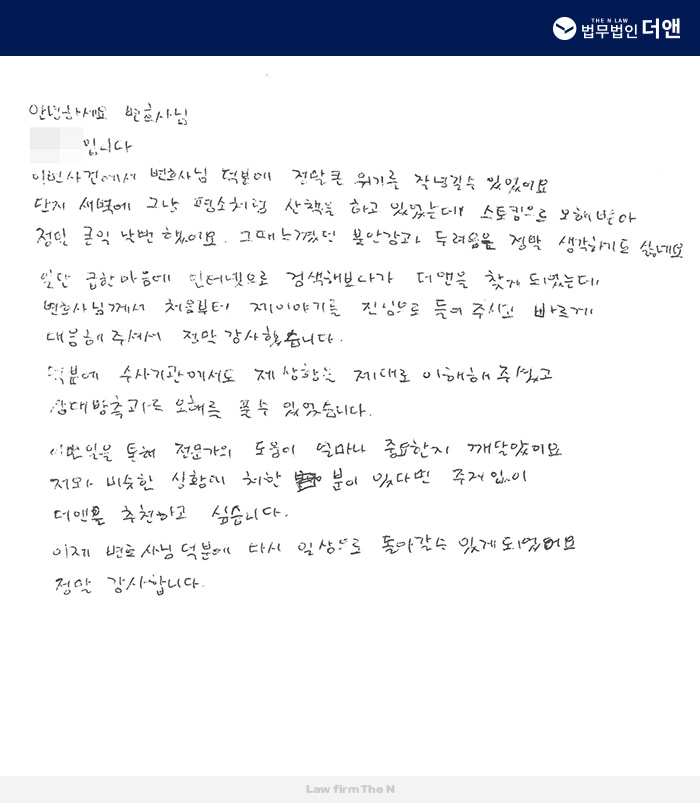 THE N LAW
법무법인 더앤
안녕하세요 변호사님
입니다
이번사건에서 변호사님 덕분에 정말 큰 위기를 작넘길수 있었어요
단지 새벽에 그냥 평소처럼 산책을 하고 있었는데 스토킹으로 오해받아
정말 큰일 날뻔 했어요. 그때느꼈던 불안감과 두려움은 정말 생각하기도 싫네요
일단 급한마음에 인터넷으로 검색해보다가 더앤을 찾게 되었는데
변호사님께서 처음부터 제이야기를 진심으로 들어주시고 빠르게
대응해주셔서 정말 감사했습니다.
덕분에 수사기관에서도 제 상황을 제대로 이해해주셨고
상대방측과도 오해를 풀수 있었습니다.
이번일을 통해 전문가의 도움이 얼마나 중요한지 깨달았어요
저와 비슷한 상황에 처한 분이 있다면 주저없이
더앤을 추천하고 싶습니다.
이제 변호사님덕분에 다시 일상으로 돌아갈수 있게되었어요
정말 감사합니다.
Law firm The N